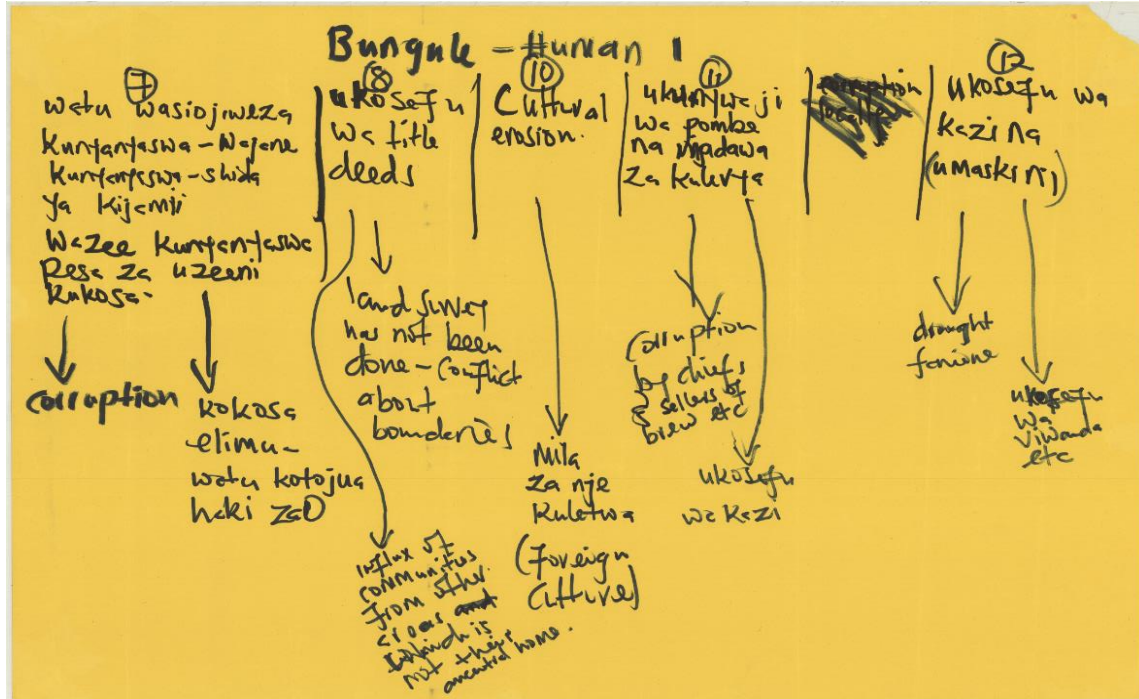 Bungule - Human 1
7
watu wasiojiweza
Kunyanyaswa - Wajane
Kunyanyaswa - shida
ya kijamii
Wazee kunyanyaswa
Pesa za uzeeni
kukosa -
corruption
kokosa
elimu -
watu kotojua
haki zao
8
ukosefu
wa title
deeds
land survey
has not been
done - conflict
about
boundaries
influx of
communities
from other
areas
which is
not their
ancestral home.
10
Cultural
erosion.
Mila
za nje
kuletwa
(Foreign
Culture)
11
ukunywaji
wa pombe
na madawa
za kulevya
corruption
by chiefs
& sellers of
brew etc
ukosefu
wa kazi
12
ukosefu wa
kazi na
(umaskini)
drought
famine
ukosefu
wa
viwanda
etc